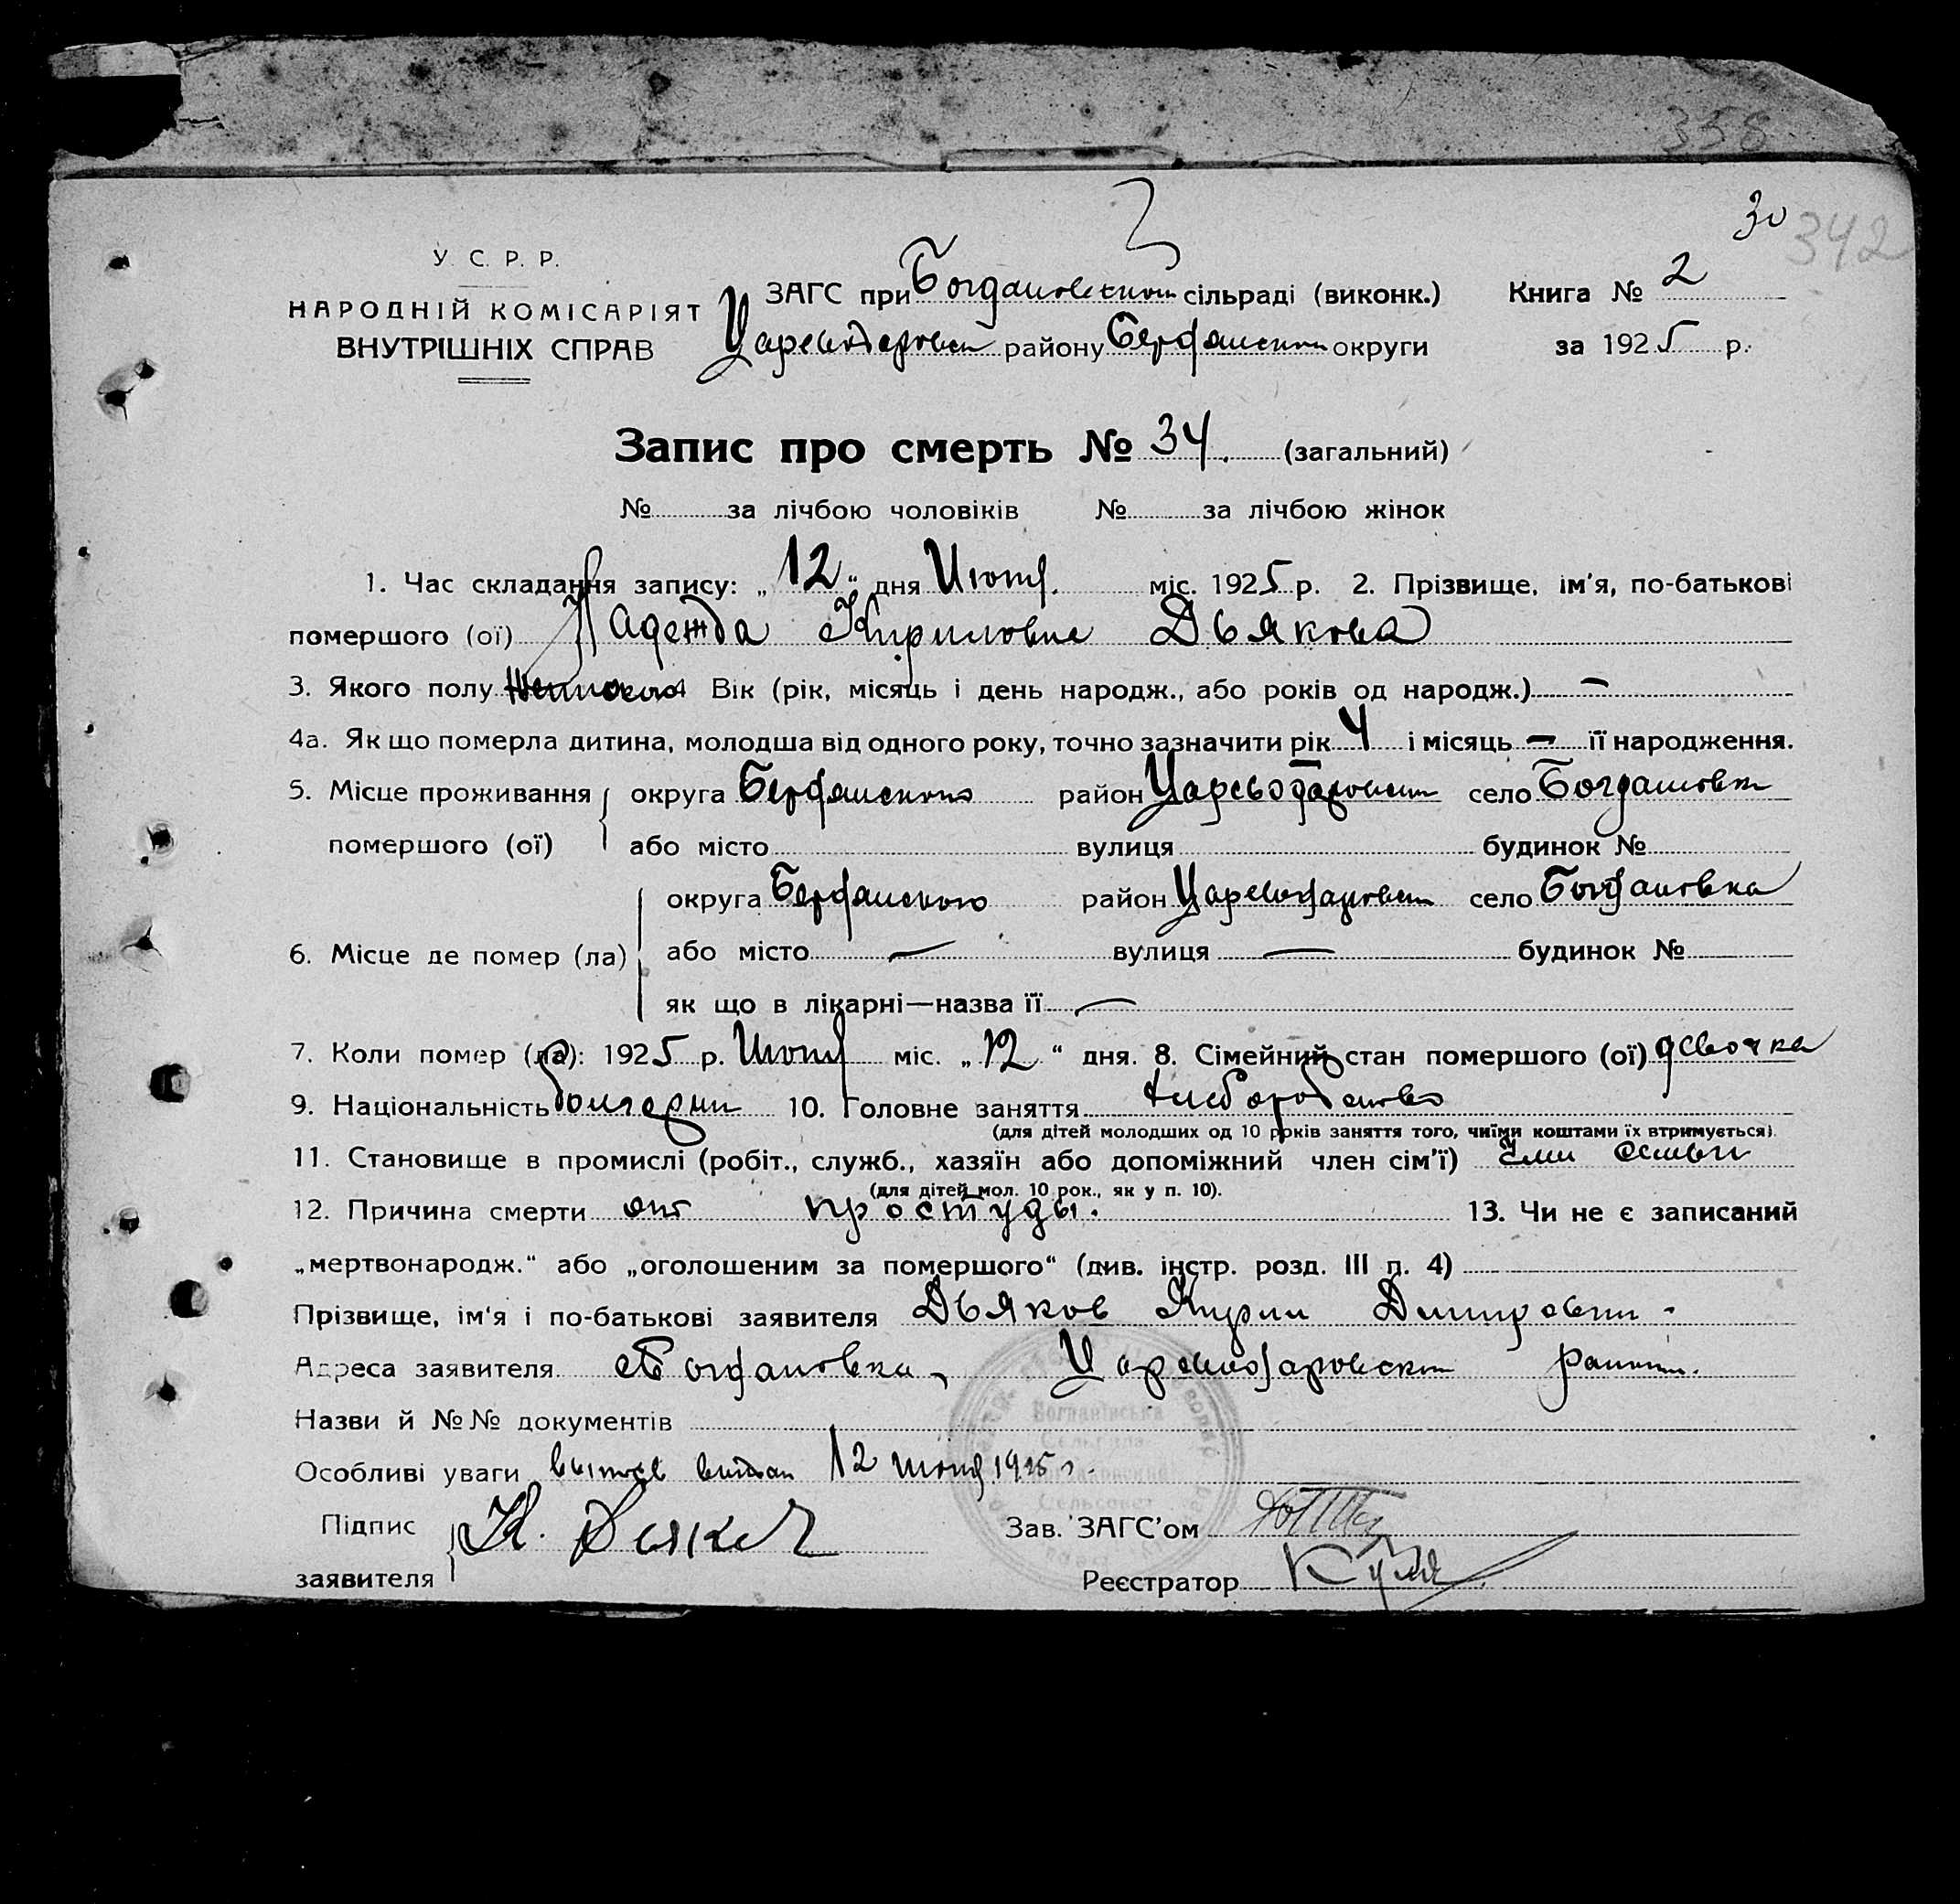 358
30 342
У. С. Р. Р.
НАРОДНІЙ КОМІСАРІЯТ
ВНУТРІШНІХ СПРАВ
ЗАГС при Богдановском сільраді (виконк.) Книга № 2
району округи за 1925 р.
Запис про смерть № 34. (загальний)
№ за лічбою чоловіків № за лічбою жінок
1. Час складання запису: „12“ дня міс. 1925 р. 2. Прізвище, ім'я, по-батькові
помершого (ої) Надежда Кириловна Дьякова
3. Якого полу 4 Вік (рік, місяць і день народж., або років од народж.) —
4а. Як що померла дитина, молодша від одного року, точно зазначити рік 4 і місяць — її народження.
5. Місце проживання округа район село
помершого (ої) або місто вулиця будинок №
округа район село Богдановка
6. Місце де помер (ла) або місто — вулиця — будинок №
як що в лікарні—назва її —
7. Коли помер (ла): 1925 р. міс. „12“ дня. 8. Сімейний стан помершого (ої) девочка
9. Національність 10. Головне заняття
(для дітей молодших од 10 років заняття того, чиїми коштами їх втримується).
11. Становище в промислі (робіт., служб., хазяїн або допоміжний член сім'ї) член семьи
(для дітей мол. 10 рок., як у п. 10).
12. Причина смерти от простуды. 13. Чи не є записаний
„мертвонародж.“ або „оголошеним за помершого“ (див. інстр. розд. III п. 4)
Прізвище, ім'я і по-батькові заявителя Дьяков Кирил
Адреса заявителя Богдановка,
Назви й №№ документів
Особливі уваги 12 1925 г.
Підпис К. Дьяков Зав. ЗАГС'ом
заявителя Реєстратор